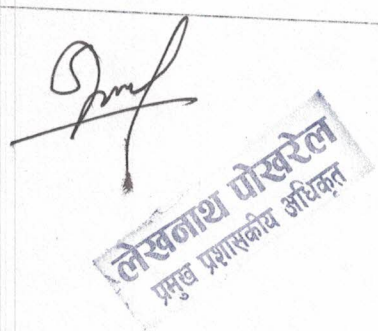 लेखनाथ पोखरेल
प्रमुख प्रशासकीय अधिकृत